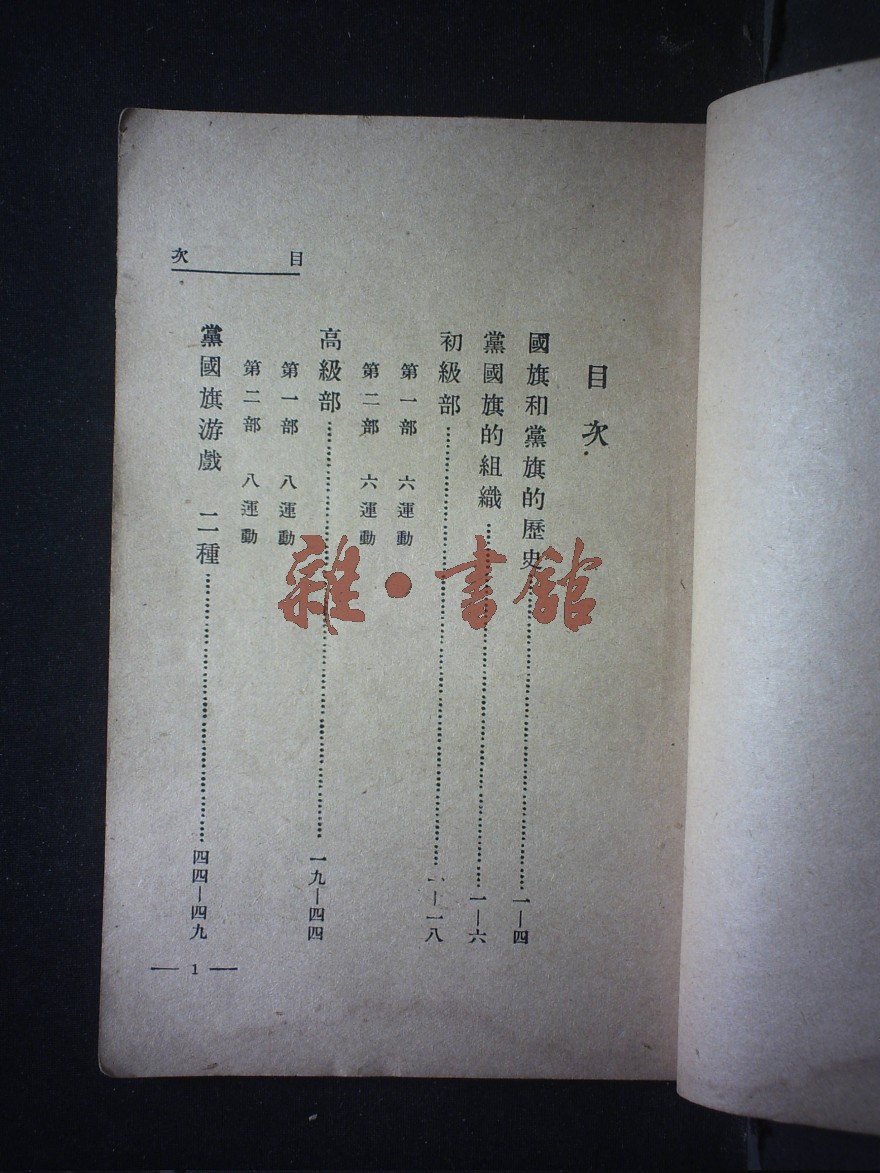 目次
國旗和黨旗的歷史……一—四
黨國旗的組織……一—六
初級部……一—一八
第一部 六運動
第二部 六運動
高級部……一九—四四
第一部 八運動
第二部 八運動
黨國旗游戲 二種……四四—四九
目次
— 1 —
雜·書館